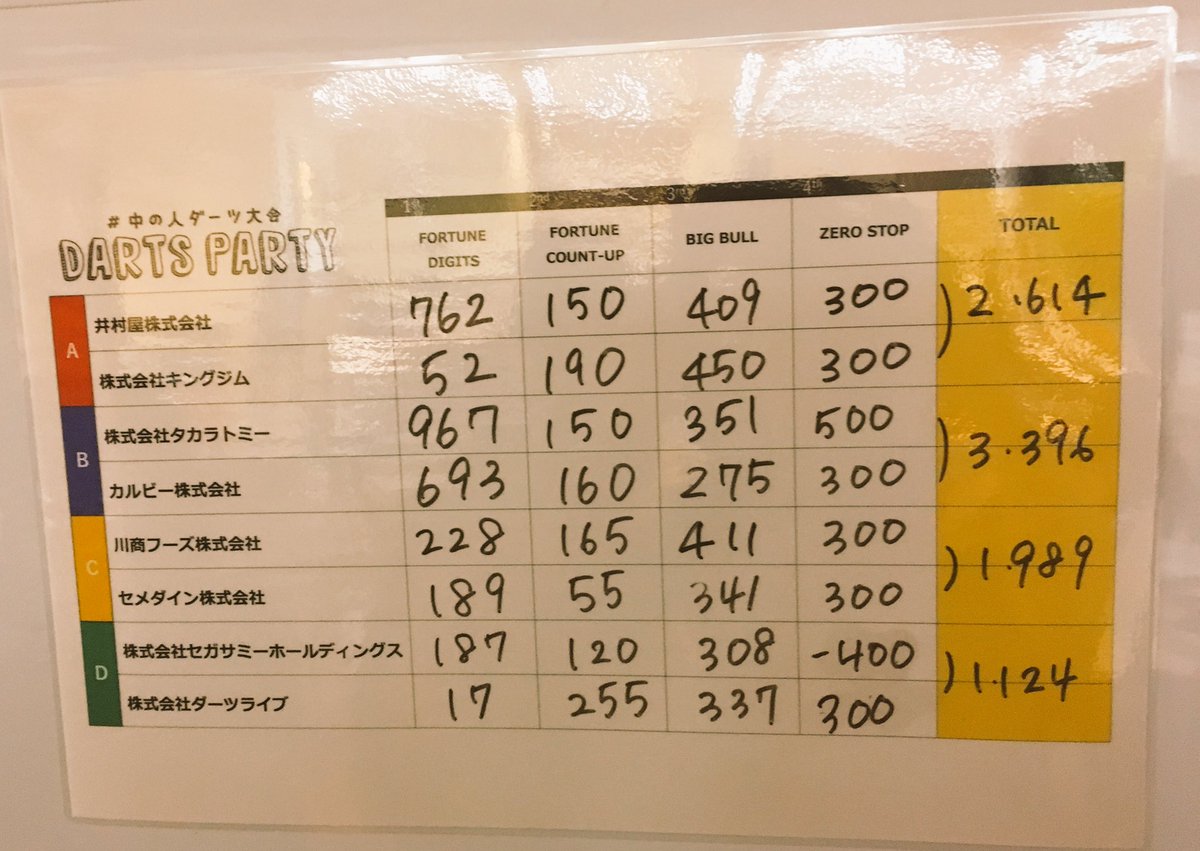 #中の人ダーツ大会
DARTS PARTY
1st 2nd 3rd 4th
FORTUNE DIGITS FORTUNE COUNT-UP BIG BULL ZERO STOP TOTAL
A
井村屋株式会社 762 150 409 300 ) 2.614
株式会社キングジム 52 190 450 300
B
株式会社タカラトミー 967 150 351 500 ) 3.396
カルビー株式会社 693 160 275 300
C
川商フーズ株式会社 228 165 411 300 ) 1.989
セメダイン株式会社 189 55 341 300
D
株式会社セガサミーホールディングス 187 120 308 -400 ) 1.124
株式会社ダーツライブ 17 255 337 300